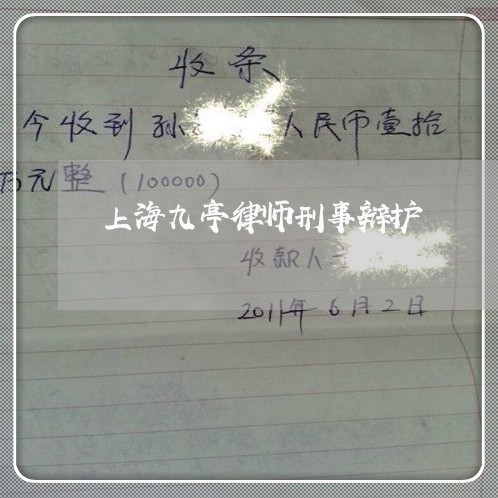 收条
今收到孙 人民币壹拾
万元整(100000)
上海九亭律师刑事辩护
收款人
2011年6月2日